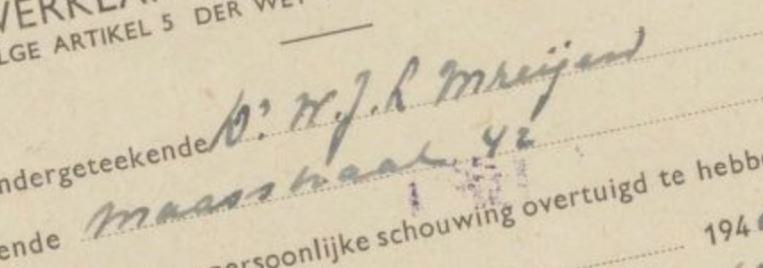 VERKLA
LGE ARTIKEL 5 DER WET
ndergeteekende Dr W.J.L Mreijen
ende Maasstraat 42
persoonlijke schouwing overtuigd te hebbe
194